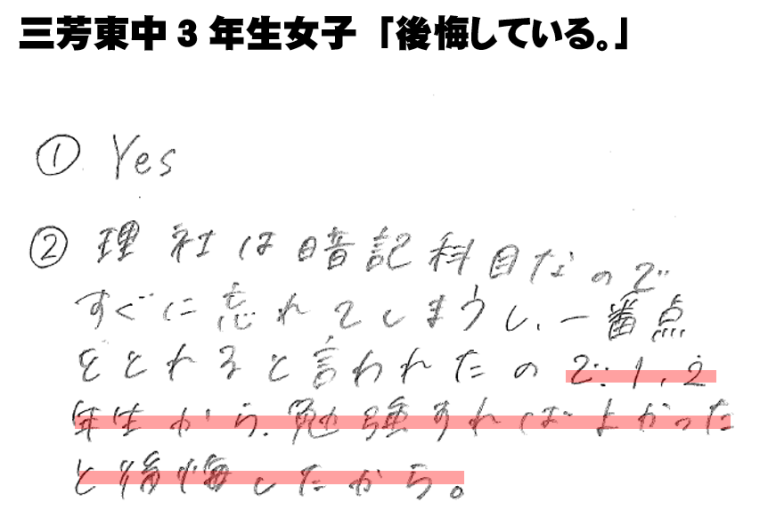 三芳東中3年生女子「後悔している。」
① Yes
② 理社は暗記科目なので
すぐに忘れてしまうし、一番点
をとれると言われたので、1、2
年生から、勉強すればよかった
と後悔したから。